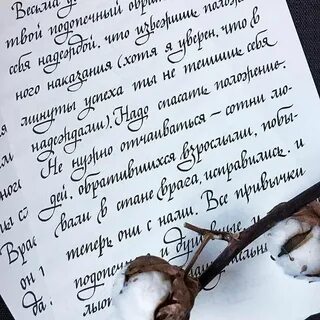 Весьма у
твой подопечный обра
себя надеждой, что избежишь положен
ного наказания (хотя я уверен, что в
минуты успеха ты не тешишь себя
надеждами). Надо спасать положение.
Не нужно отчаиваться – сотни лю-
дей, обратившихся взрослыми, побы-
вали в стане врага, исправились и
теперь они с нами. Все привычки
подопечн и душевные, и